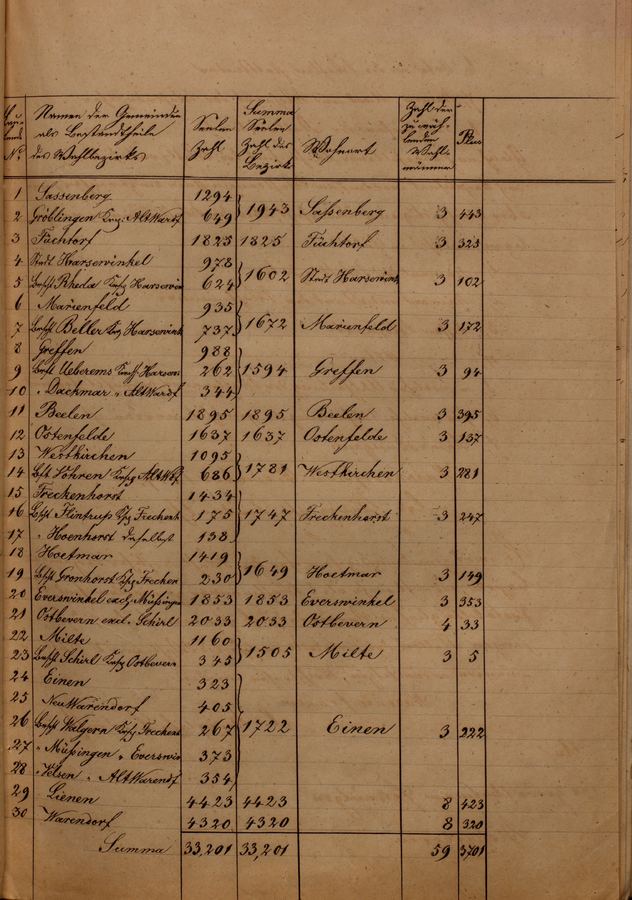 Namen der Gemeinden als Bestandtheile des Wahlbezirks | Seelen Zahl | Summa Seelen Zahl des Bezirks | Wahlort | Zahl der zu wählenden Wahlmänner | Plus
1 Sassenberg 1294
2 Gröblingen AltWardf 649 1943 Sassenberg 3 443
3 Füchtorf 1825 1825 Füchtorf 3 325
4 Stadt Harsewinkel 978
5 Bschft Rheda Harsewin 624 1602 Stadt Harsewink 3 102
6 Marienfeld 935
7 Bschft Beller Harsewink 737 1672 Marienfeld 3 172
8 Greffen 988
9 Bschft Ueberems Harsew 262 1594 Greffen 3 94
10 " Dackmar " AltWardf 344
11 Beelen 1895 1895 Beelen 3 395
12 Ostenfelde 1637 1637 Ostenfelde 3 137
13 Westkirchen 1095
14 Bschft Vohren AltWdf 686 1781 Westkirchen 3 281
15 Freckenhorst 1434
16 Bschft Flintrup Freckenh 175 1747 Freckenhorst 3 247
17 " Hoenhorst daselbst 138
18 Hoetmar 1419
19 Bschft Gronhorst Frecken 230 1649 Hoetmar 3 149
20 Everswinkel excl. Müssingen 1853 1853 Everswinkel 3 353
21 Ostbevern excl. Schirl 2033 2033 Ostbevern 4 33
22 Milte 1160
23 Bschft Schirl Ostbevern 345 1505 Milte 3 5
24 Einen 323
25 Neu Warendorf 405
26 Bschft Walgern Freckenh 267 1722 Einen 3 222
27 " Müssingen " Everswin 373
28 " Velsen " AltWarendf 354
29 Lienen 4423 4423 8 423
30 Warendorf 4320 4320 8 320
Summa 33,201 33,201 59 3701